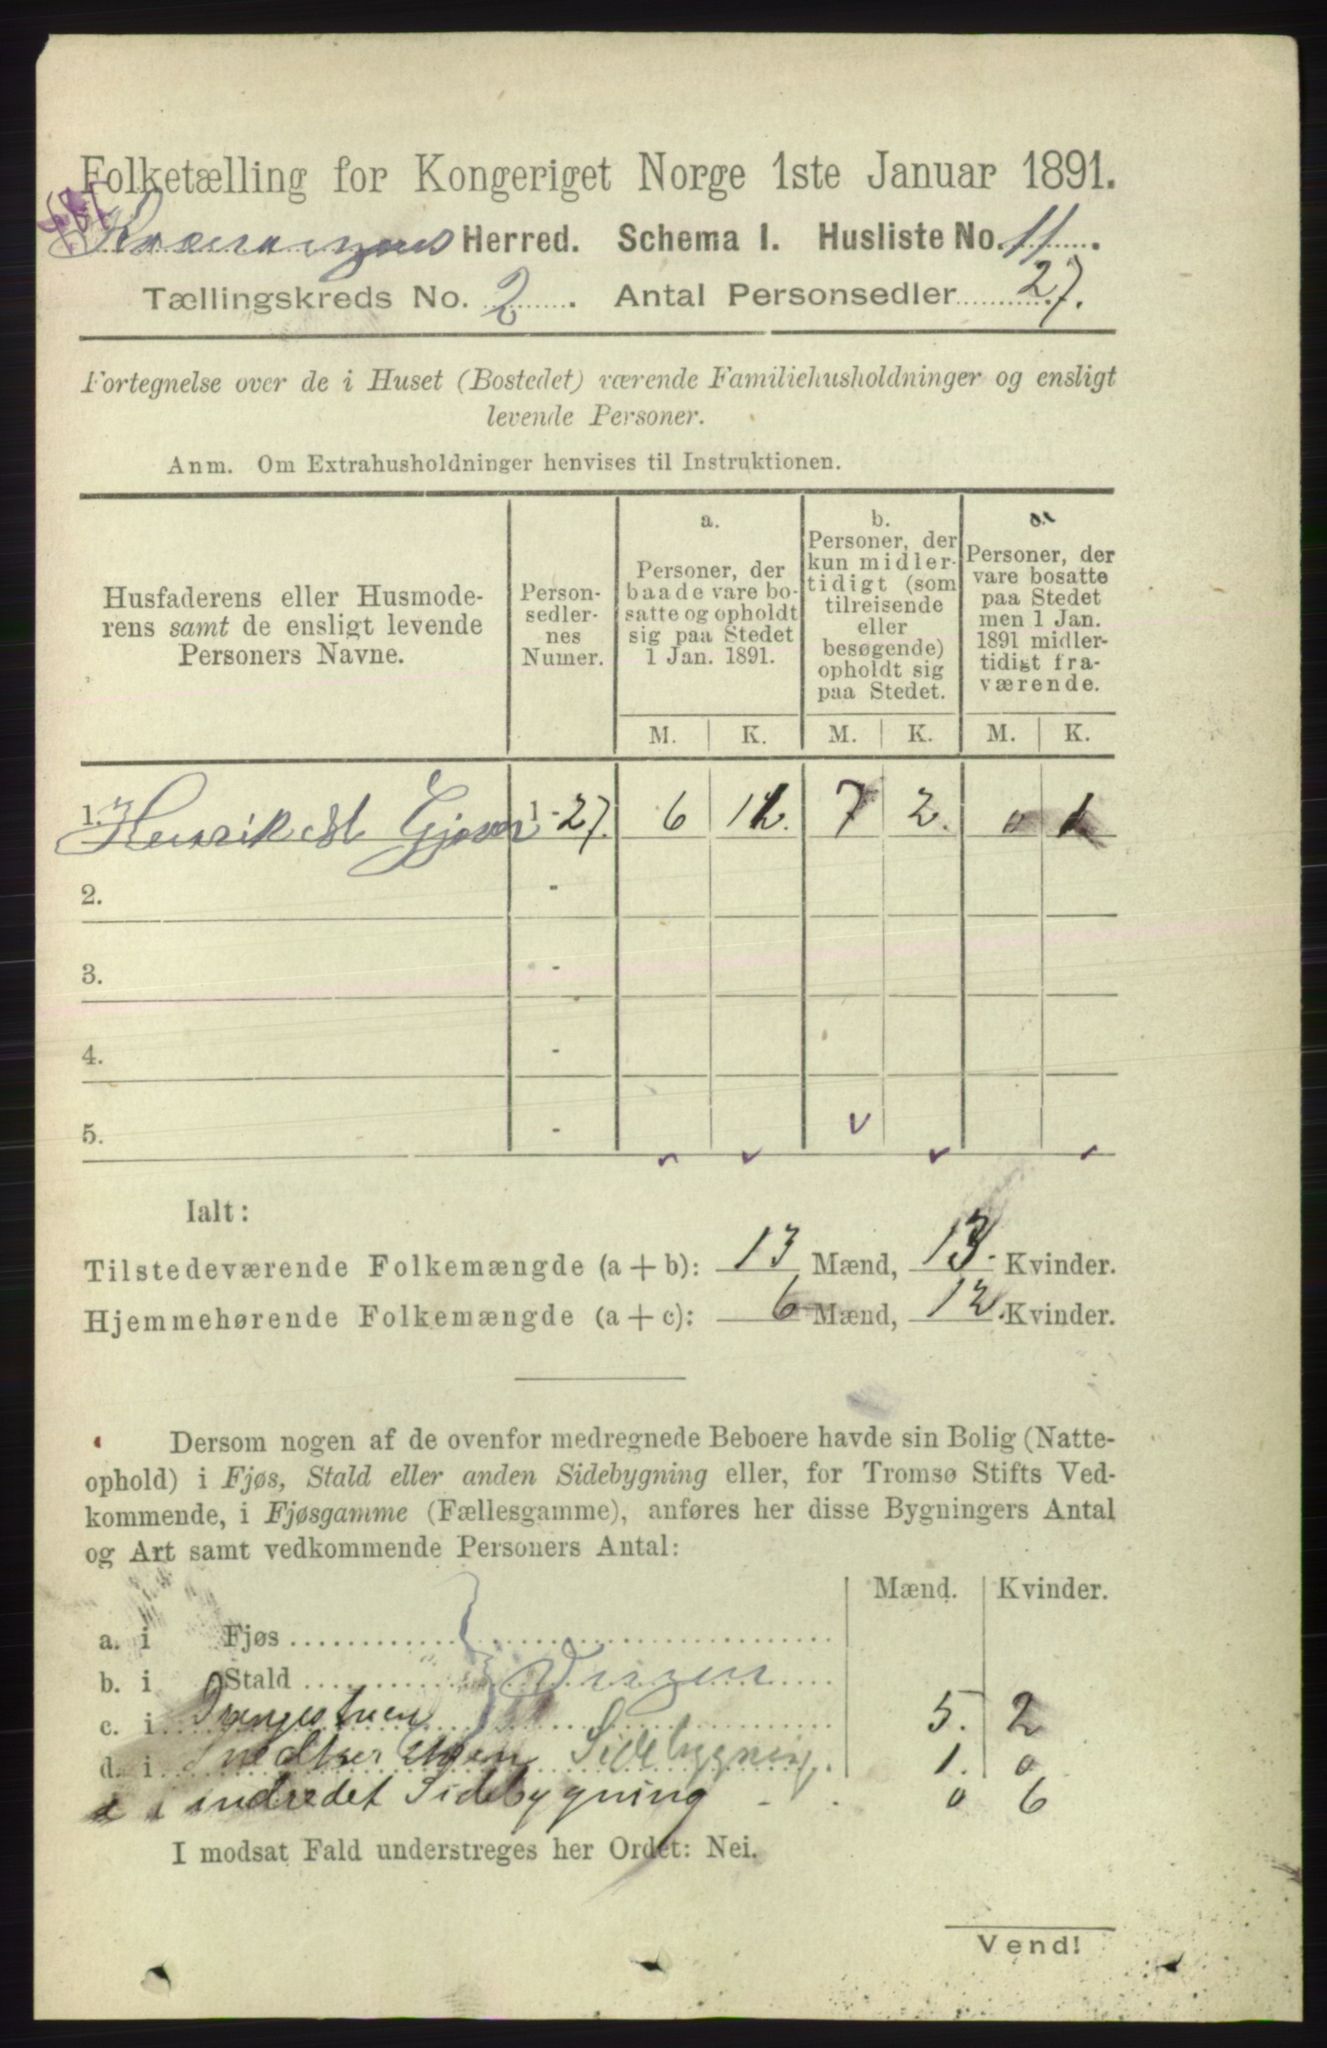 Folketælling for Kongeriget Norge 1ste Januar 1891.
Herred. Schema I. Husliste No. 11.
Tællingskreds No. 2. Antal Personsedler 27.
Fortegnelse over de i Huset (Bostedet) værende Familiehusholdninger og ensligt
levende Personer.
Anm. Om Extrahusholdninger henvises til Instruktionen.
Husfaderens eller Husmode-
rens samt de ensligt levende
Personers Navne.
Person-
sedler-
nes
Numer.
a.
Personer, der
baade vare bo-
satte og opholdt
sig paa Stedet
1 Jan. 1891.
b.
Personer, der
kun midler-
tidigt (som
tilreisende
eller
besøgende)
opholdt sig
paa Stedet.
c.
Personer, der
vare bosatte
paa Stedet
men 1 Jan.
1891 midler-
tidigt fra-
værende.
M. K. M. K. M. K.
1. Henrik 1-27. 6 12. 7 2. 0 1
2. -
3. -
4. -
5. -
Ialt:
Tilstedeværende Folkemængde (a + b): 13 Mænd, 13. Kvinder.
Hjemmehørende Folkemængde (a + c): 6 Mænd, 12. Kvinder.
Dersom nogen af de ovenfor medregnede Beboere havde sin Bolig (Natte-
ophold) i Fjøs, Stald eller anden Sidebygning eller, for Tromsø Stifts Ved-
kommende, i Fjøsgamme (Fællesgamme), anføres her disse Bygningers Antal
og Art samt vedkommende Personers Antal:
Mænd. Kvinder.
a. i Fjøs
b. i Stald
c. i 5. 2
d. i Sidebygning. 1. 0
i indredet Sidebygning - . 0 6
I modsat Fald understreges her Ordet: Nei.
Vend!